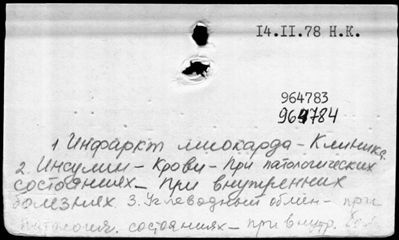 14.II.78 Н.К.
964783
964784
1 Инфаркт миокарда - Клиника.
2. Инсулин - Крови - При патологических
состояниях - При внутренних
болезнях 3. Углеводный обмен - при
патологич. состояниях - при внутр. бол.